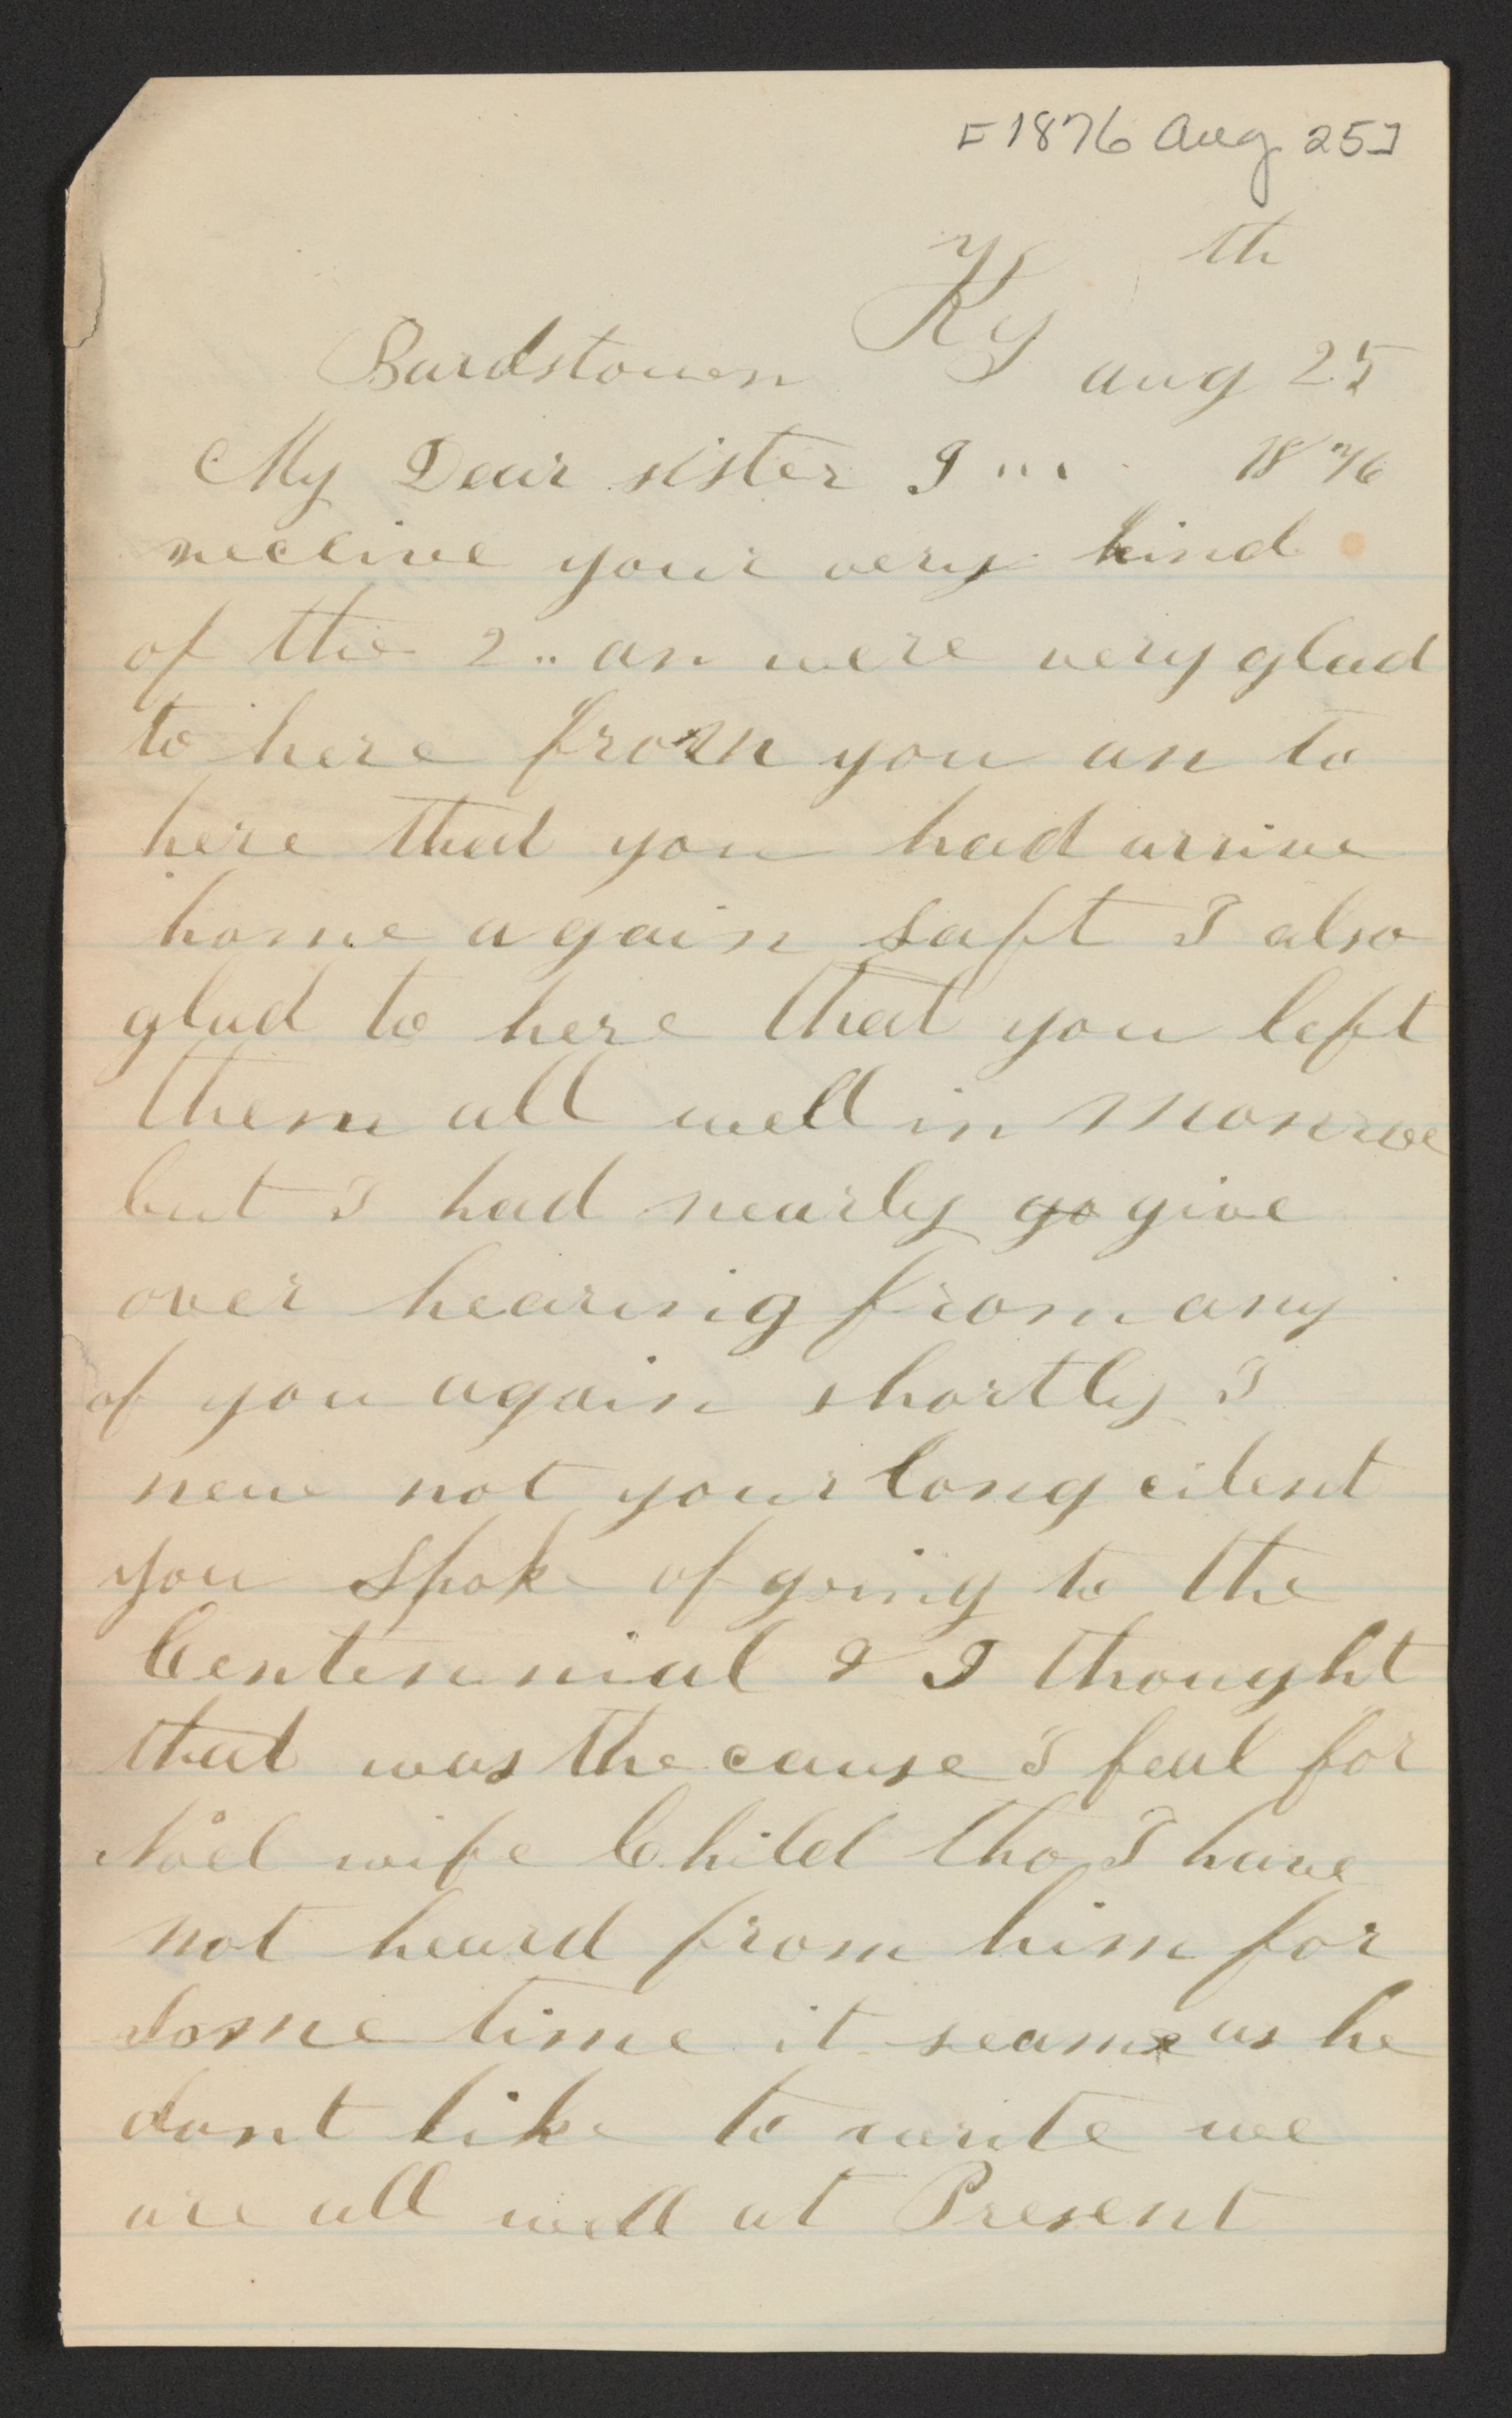 [1876 Aug 25]
Bardstown Ky aug 25th
My Dear sister I ... 1876
receive your very kind
of the 2.. an were very glad
to here from you an to
here that you had arrive
home again saft I also
glad to here that you left
them all well in Monroe
but I had nearly go give
over hearing from any
of you again shortly I
new not your long cilent
you spoke of going to the
Centennial & I thought
that was the cause I feal for
Noel wife Child tho I have
not heard from him for
some time it seams as he
dont like to write we
are all well at Present